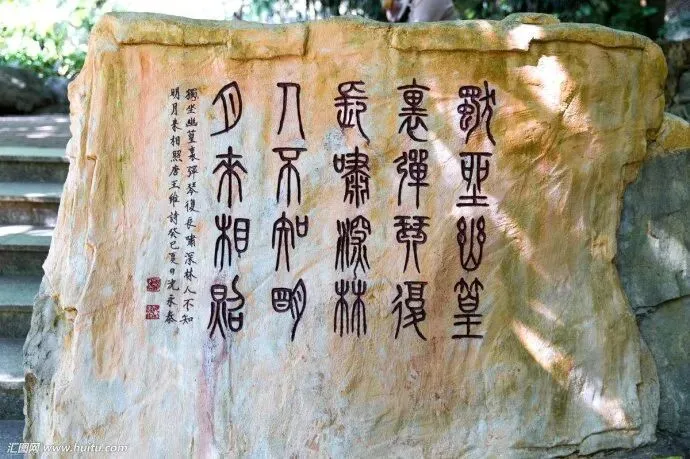 獨坐幽篁
裏彈琴復
長嘯深林
人不知明
月來相照
獨坐幽篁裏彈琴復長嘯深林人不知
明月来相照唐王維詩癸巳夏日沈永泰
汇图网 www.huitu.com